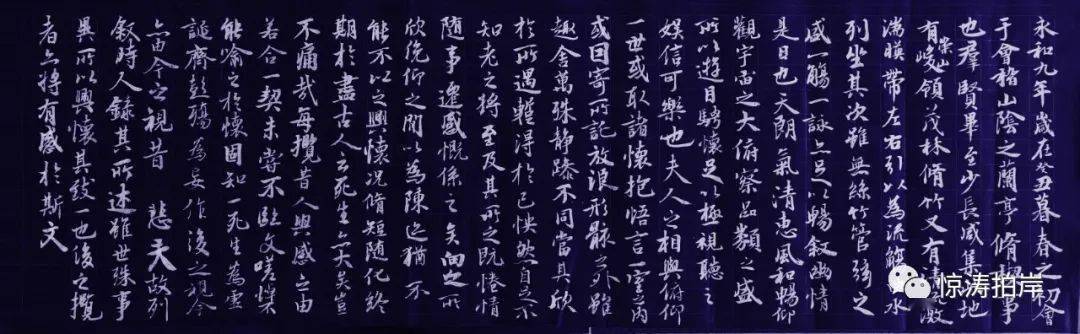 永和九年歲在癸丑暮春之初會
于會稽山陰之蘭亭脩事
也群賢畢至少長咸集此地
有崇山峻領茂林脩竹又有激
湍暎帶左右引以為流觴水
列坐其次雖無絲竹管弦之
盛一觴一詠亦足以暢敘幽情
是日也天朗氣清惠風和暢仰
觀宇宙之大俯察品類之盛
所以遊目騁懷足以極視聽之
娛信可樂也夫人之相與俯仰
一世或取諸懷抱悟言一室之內
或因寄所託放浪形骸之外雖
趣舍萬殊靜躁不同當其欣
於所遇暫得於己怏然自足不
知老之將至及其所之既惓情
隨事遷感慨係之矣向之所
欣俛仰之閒以為陳迹猶不
能不以之興懷況脩短隨化終
期於盡古人云死生亦大矣豈
不痛哉每攬昔人興感之由
若合一契未嘗不臨文嗟悼
能喻之於懷固知一死生為虛
誕齊彭殤為妄作後之視今
亦由今之視昔 悲夫故列
敘時人錄其所述雖世殊事
異所以興懷其致一也後之攬
者亦將有感於斯文
惊涛拍岸